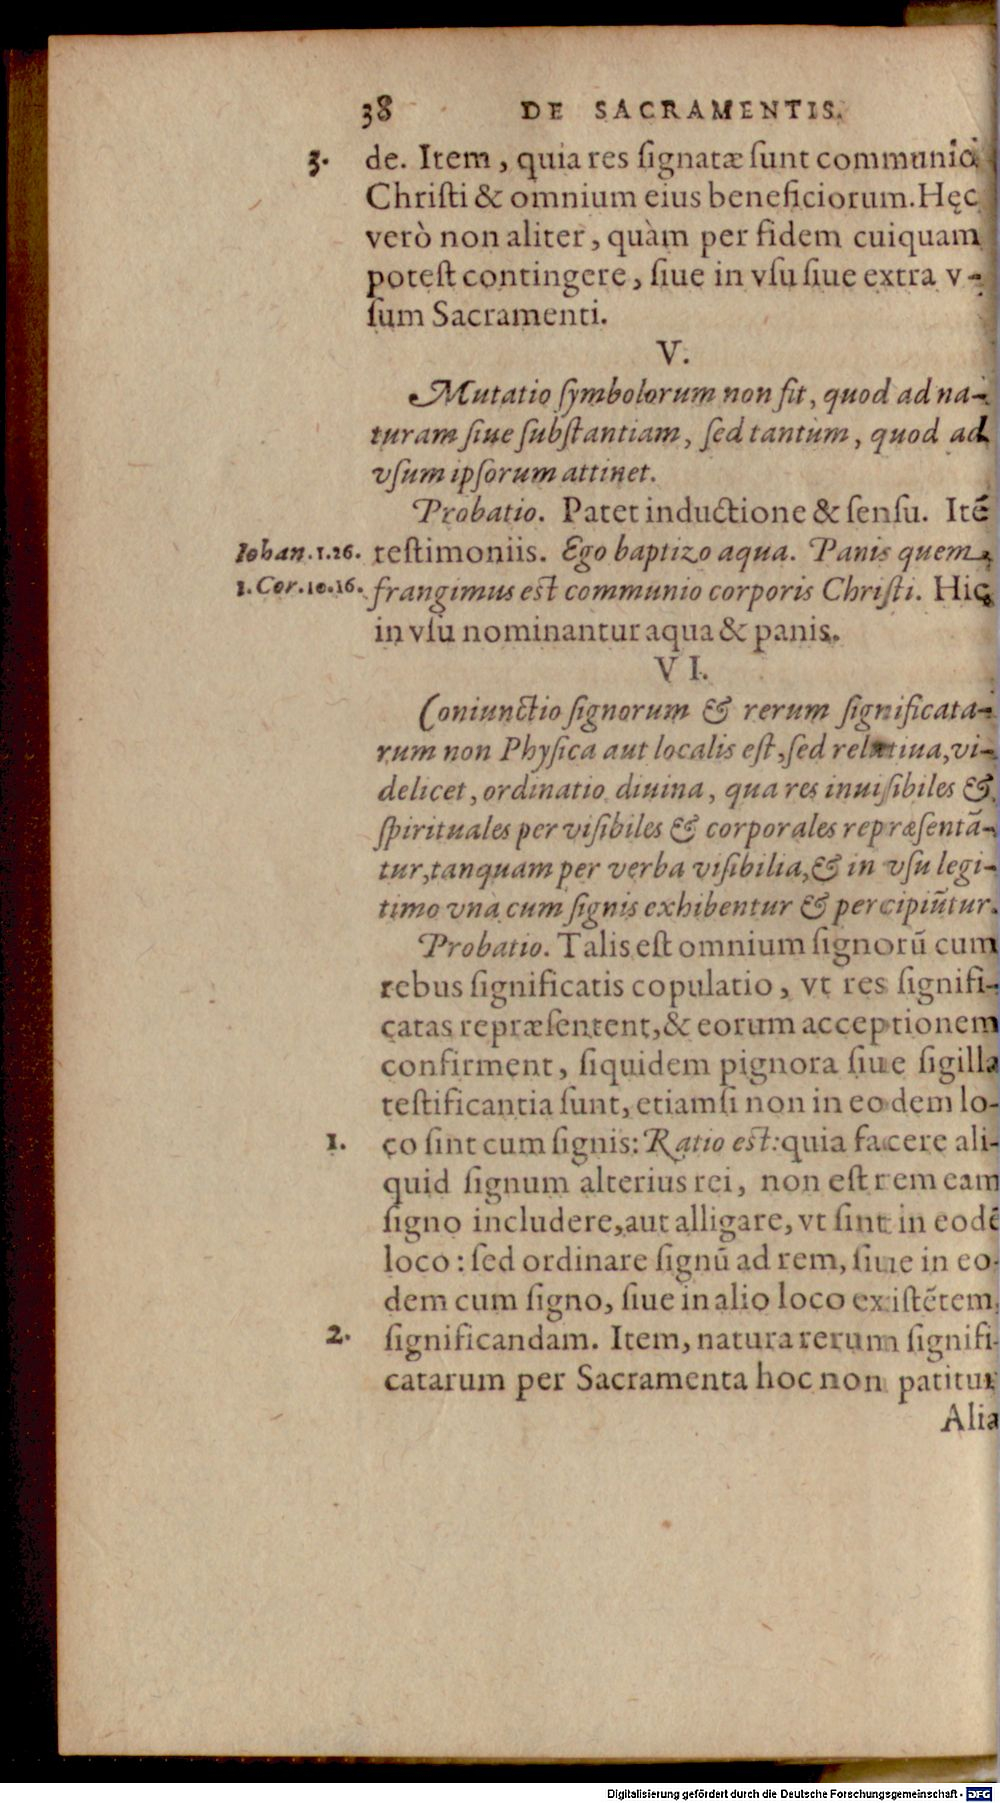 38 DE SACRAMENTIS.
3. de. Item, quia res ſignatæ ſunt communio
Chriſti & omnium eius beneficiorum. Hęc
verò non aliter, quàm per fidem cuiquam
poteſt contingere, ſiue in vſu ſiue extra v-
ſum Sacramenti.
V.
Mutatio ſymbolorum non fit, quod ad na-
turam ſiue ſubſtantiam, ſed tantùm, quod ad
vſum ipſorum attinet.
Probatio. Patet inductione & ſenſu. Itē
Iohan. 1.26. teſtimoniis. Ego baptizo aqua. Panis quem
1. Cor. 10.16. frangimus eſt communio corporis Chriſti. Hic
in vſu nominantur aqua & panis.
VI.
Coniunctio ſignorum & rerum ſignificata-
rum non Phyſica aut localis eſt, ſed relatiua, vi-
delicet, ordinatio diuina, qua res inuiſibiles &
ſpirituales per viſibiles & corporales repræſentā-
tur, tanquam per verba viſibilia, & in vſu legi-
timo vnà cum ſignis exhibentur & percipiūtur.
Probatio. Talis eſt omnium ſignorū cum
rebus ſignificatis copulatio, vt res ſignifi-
catas repræſentent, & eorum acceptionem
confirment, ſiquidem pignora ſiue ſigilla
teſtificantia ſunt, etiamſi non in eodem lo-
1. co ſint cum ſignis: Ratio eſt: quia facere ali-
quid ſignum alterius rei, non eſt rem eam
ſigno includere, aut alligare, vt ſint in eodē
loco: ſed ordinare ſignū ad rem, ſiue in eo-
dem cum ſigno, ſiue in alio loco exiſtētem,
2. ſignificandam. Item, natura rerum ſignifi-
catarum per Sacramenta hoc non patitur
Alia
Digitalisierung gefördert durch die Deutsche Forschungsgemeinschaft - DFG